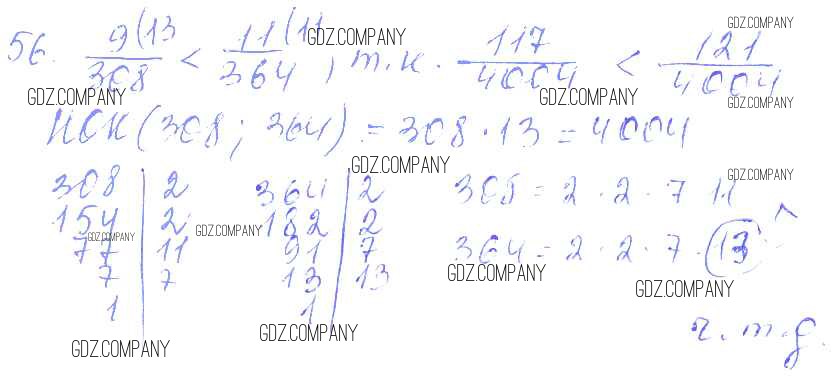 56. 9(13/308 < 11(11/364, т.к. 117/4004 < 121/4004
НОК(308; 364) = 308 · 13 = 4004
308 | 2 364 | 2 308 = 2 · 2 · 7 · 11
154 | 2 182 | 2
77 | 11 91 | 7 364 = 2 · 2 · 7 · 13
7 | 7 13 | 13
1 1
ч.т.д.
GDZ.COMPANY
GDZ.COMPANY
GDZ.COMPANY
GDZ.COMPANY
GDZ.COMPANY
GDZ.COMPANY
GDZ.COMPANY
GDZ.COMPANY
GDZ.COMPANY
GDZ.COMPANY
GDZ.COMPANY
GDZ.COMPANY
GDZ.COMPANY